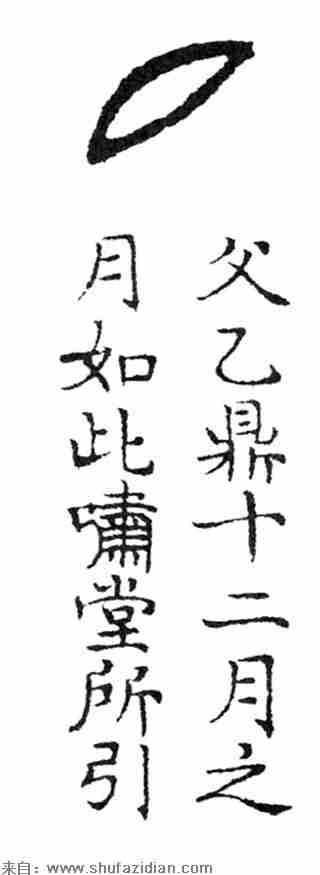 父乙鼎十二月之
月如此嘯堂所引
来自：www.shufazidian.com